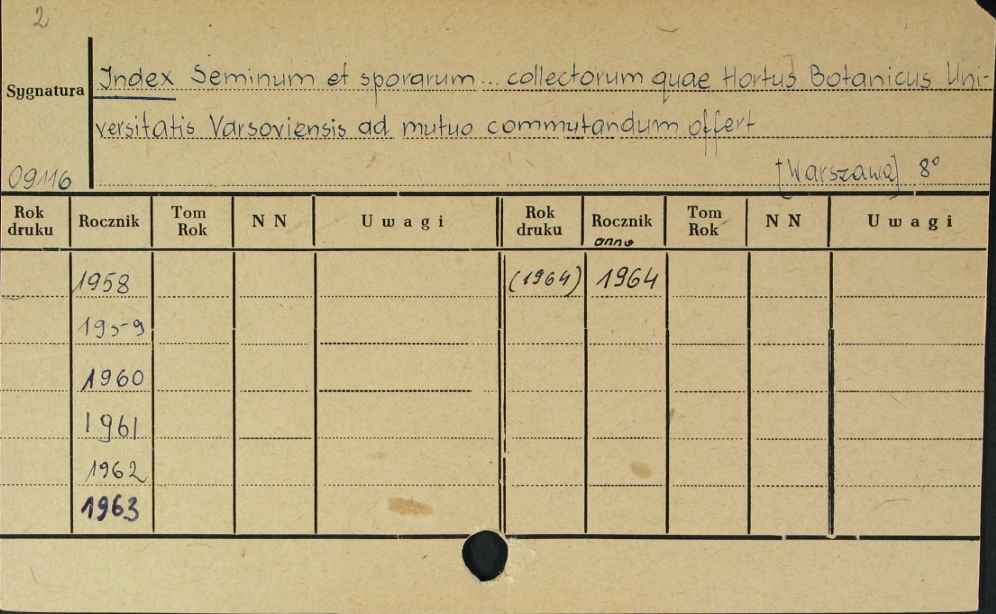 2
Sygnatura
Index Seminum et sporarum ... collectorum quae Hortus Botanicus Uni-
versitatis Varsoviensis ad mutuo commutandum offert
09116
[Warszawa] 8°
Rok druku Rocznik Tom Rok N N Uwagi Rok druku Rocznik Tom Rok N N Uwagi
anno
1958 (1964) 1964
1959
1960
1961
1962
1963